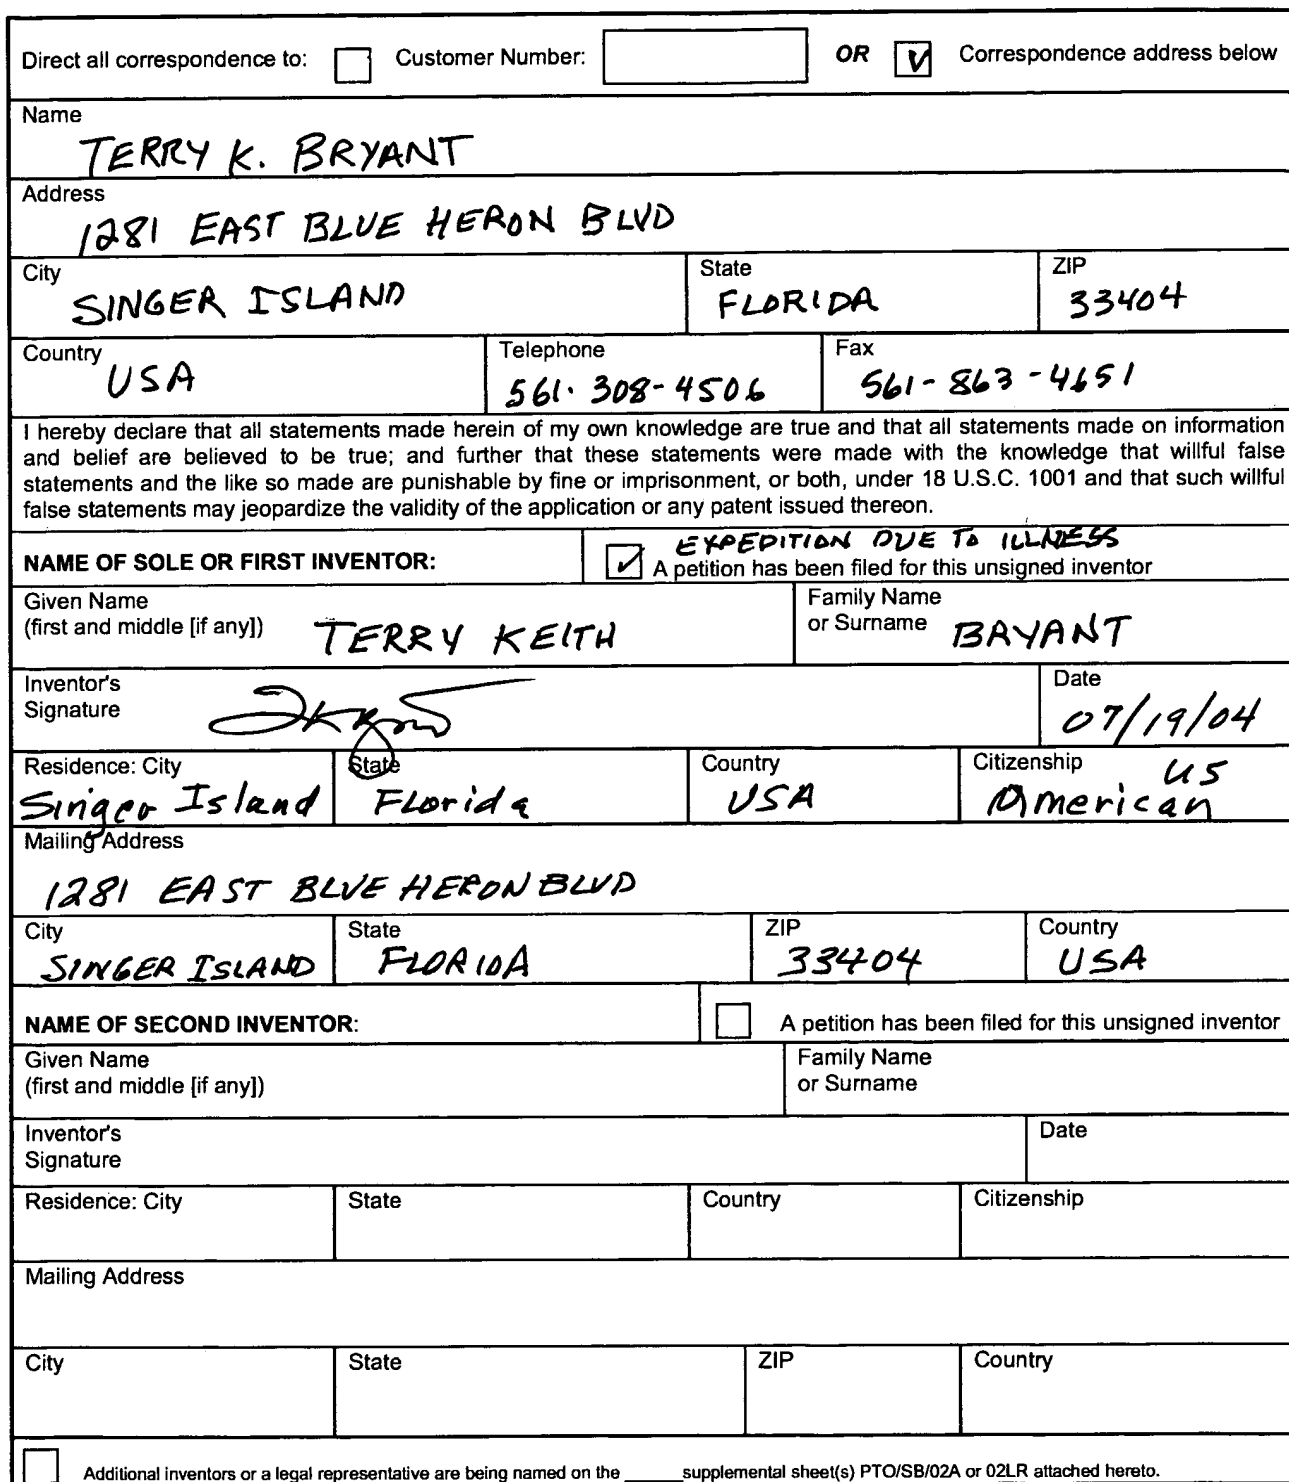 Direct all correspondence to: Customer Number: OR Correspondence address below
Name
TERRY K. BRYANT
Address
1281 EAST BLUE HERON BLVD
City State ZIP
SINGER ISLAND FLORIDA 33404
Country Telephone Fax
USA 561. 308-4506 561-863-4651
I hereby declare that all statements made herein of my own knowledge are true and that all statements made on information
and belief are believed to be true; and further that these statements were made with the knowledge that willful false
statements and the like so made are punishable by fine or imprisonment, or both, under 18 U.S.C. 1001 and that such willful
false statements may jeopardize the validity of the application or any patent issued thereon.
EXPEDITION DUE TO ILLNESS
NAME OF SOLE OR FIRST INVENTOR: A petition has been filed for this unsigned inventor
Given Name Family Name
(first and middle [if any]) TERRY KEITH or Surname BRYANT
Inventor's Date
Signature 07/19/04
Residence: City State Country Citizenship US
Singer Island Florida USA American
Mailing Address
1281 EAST BLUE HERON BLVD
City State ZIP Country
SINGER ISLAND FLORIDA 33404 USA
NAME OF SECOND INVENTOR: A petition has been filed for this unsigned inventor
Given Name Family Name
(first and middle [if any]) or Surname
Inventor's Date
Signature
Residence: City State Country Citizenship
Mailing Address
City State ZIP Country
Additional inventors or a legal representative are being named on the ______supplemental sheet(s) PTO/SB/02A or 02LR attached hereto.